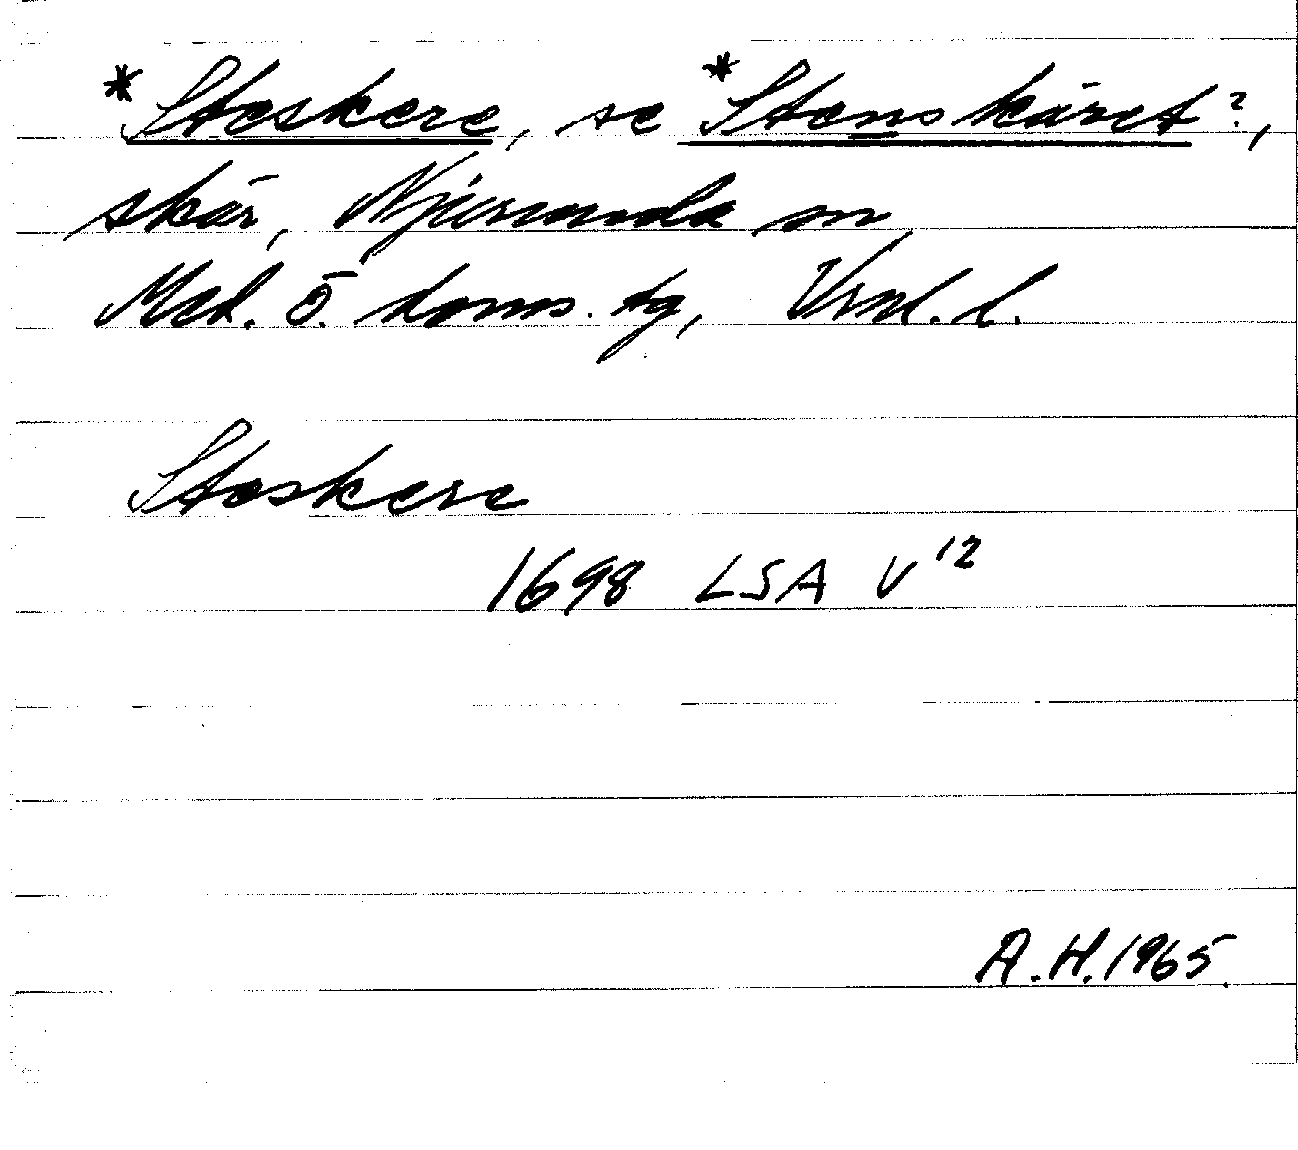 *Stoskere, se *Stenskäret?,
skär, Njurunda sn
Med. ö. doms. tg, Vrnl. l.
Stoskere
1698 LSA V¹²
A.H. 1965.